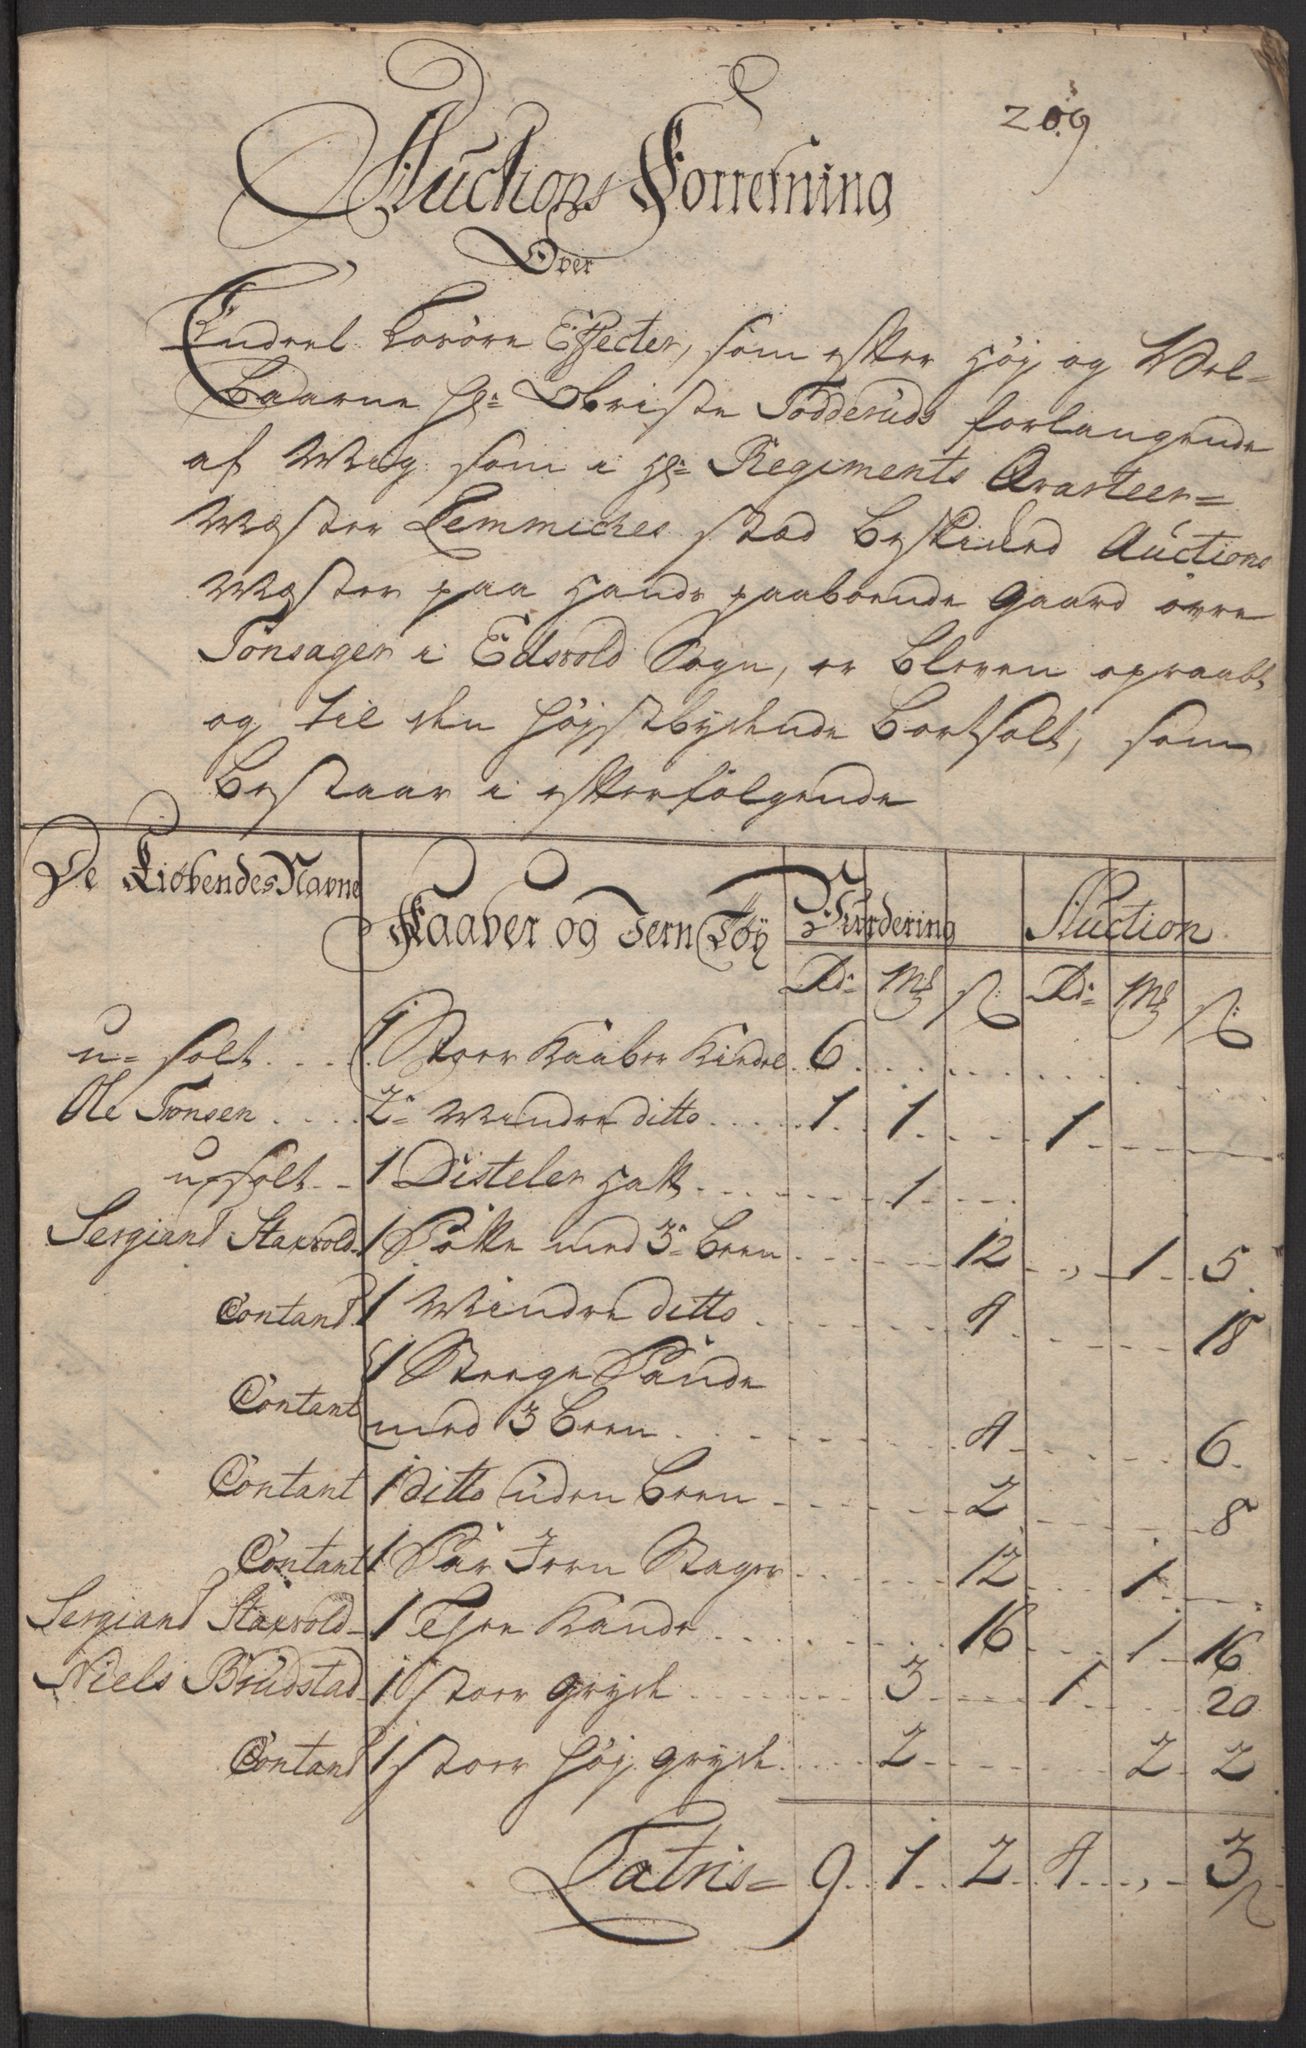 209.
Auctions Forretning
Over
Endeel Løsøre Effecter, som efter Høj og Vel=
baarne Hr: Obriste Todderuds forlangende
af Mig som i Hr: Regiments Qvarteer=
Mester Lemmiches stæd beskicked Auctions
Mæster paa Hands paaboende Gaard øvre
Tonsager i Edsvold Sogn, er bleven opraabt
og til den Højstbydende bortsolt, som
bestaar i efterfølgende
De Kiøbendes Navne Kaaber og Jern Tøy Vurdering Auction
Rd: Mk ß: Rd: Mk ß:
u-solt 1 Stoer Kaaber Kiedel 6
Ole Tronsen 2: Mindre ditto 1 1 1
u-solt 1 Disteler hatt 1
Sergiant Staxvold 1 Potte med 3: been 12 , 1 5
Contant 1 Mindre ditto 4 18
Contant 1 Steege Pande
med 3 been 4 6
Contant 1 ditto uden been 2 8
Contant 1 Par Jern Stager 12 1
Sergiant Staxvold 1 Thee Kande 16 1 16
Niels Brudstad 1 stoer gryde 3 1 20
Contant 1 stoer høj gryde 2 2 2
Latris = 9 1 2 4 , 3 ß